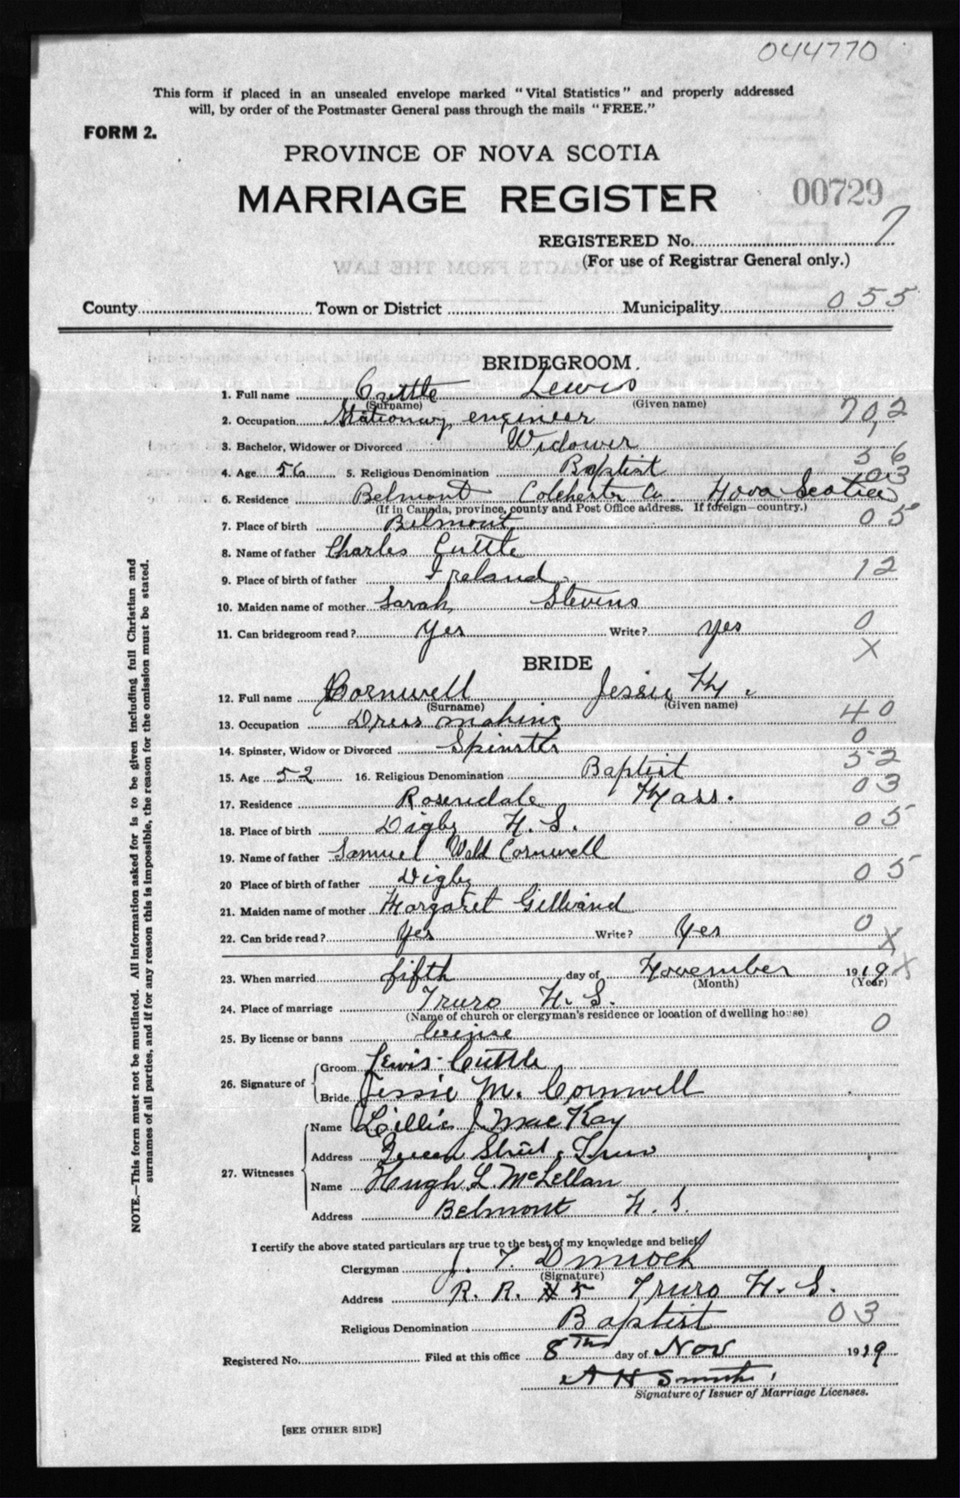 044770
This form if placed in an unsealed envelope marked "Vital Statistics" and properly addressed
will, by order of the Postmaster General pass through the mails "FREE."
FORM 2.
PROVINCE OF NOVA SCOTIA
MARRIAGE REGISTER 00729
REGISTERED No. 7
(For use of Registrar General only.)
County Town or District Municipality 055
BRIDEGROOM.
1. Full name Cuttle Lewis
(Surname) (Given name)
2. Occupation Stationary engineer 702
3. Bachelor, Widower or Divorced Widower 1
4. Age 56 5. Religious Denomination Baptist 56
03
6. Residence Belmont Colchester Co. Nova Scotia
(If in Canada, province, county and Post Office address. If foreign—country.)
7. Place of birth Belmont 05
8. Name of father Charles Cuttle
9. Place of birth of father Ireland. 12
10. Maiden name of mother Sarah Stevens
11. Can bridegroom read? Yes Write? Yes 0
X
BRIDE
12. Full name Cornwell Jessie M.
(Surname) (Given name)
13. Occupation Dress making 40
14. Spinster, Widow or Divorced Spinster 0
15. Age 52 16. Religious Denomination Baptist 52
17. Residence Rosendale Mass. 03
18. Place of birth Digby N.S. 05
19. Name of father Samuel Cornwell
20 Place of birth of father Digby 05
21. Maiden name of mother Margaret
22. Can bride read? Yes Write? Yes 0
X
23. When married fifth day of November 1919 X
(Month) (Year)
24. Place of marriage Truro N.S.
(Name of church or clergyman's residence or location of dwelling house)
25. By license or banns license 0
26. Signature of Groom Lewis Cuttle
Bride Jessie M. Cornwell
27. Witnesses
Name Lillie J MacKay
Address Queen Street, Truro
Name Hugh L. McLellan
Address Belmont N.S.
I certify the above stated particulars are true to the best of my knowledge and belief
Clergyman J. T. Dimock
(Signature)
Address R. R. # 5 Truro N.S.
Religious Denomination Baptist 03
Registered No. Filed at this office 8th day of Nov 1919
A H Smith
Signature of Issuer of Marriage Licenses.
[SEE OTHER SIDE]
NOTE.—This form must not be mutilated. All information asked for is to be given including full Christian and
surnames of all parties, and if for any reason this is impossible, the reason for the omission must be stated.